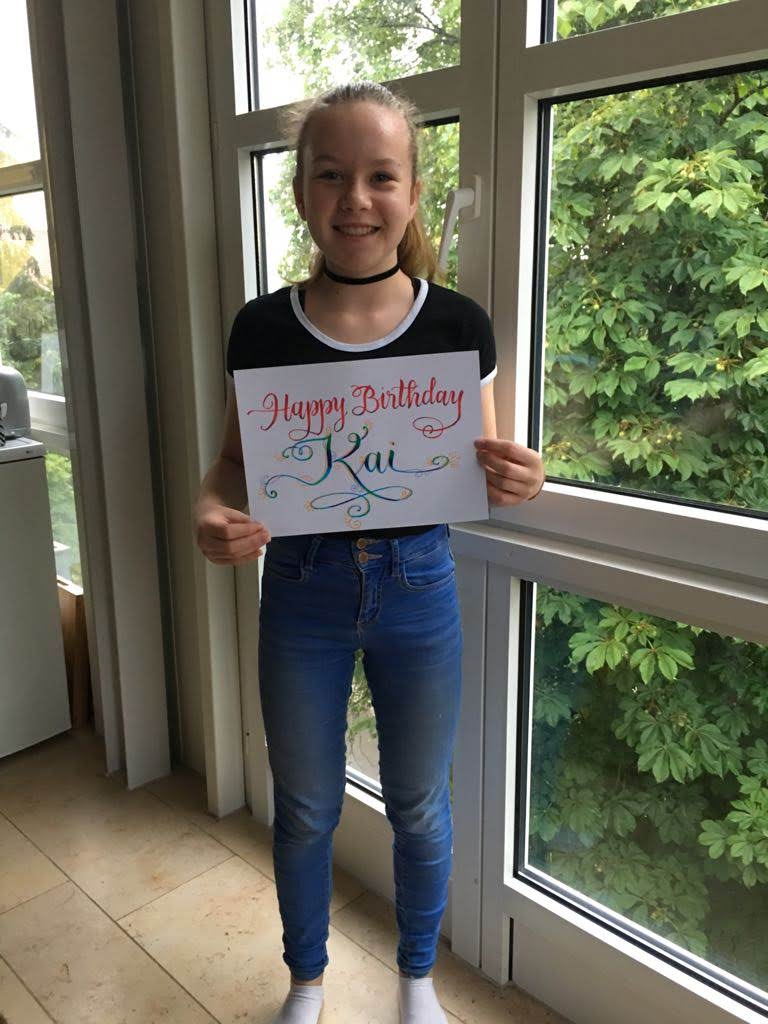 Happy Birthday
Kai